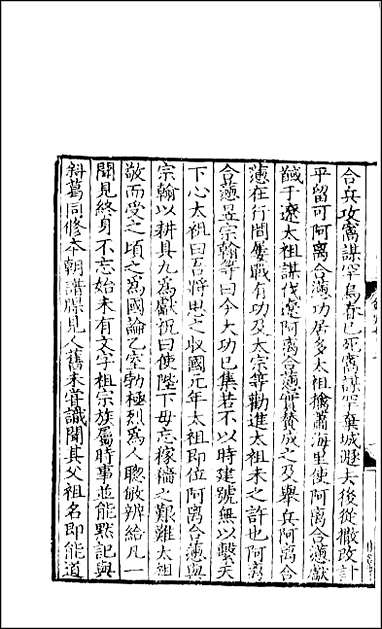 合兵攻窩謀罕烏春已死窩謀罕棄城遯去後從撒改討
平留可阿离合懣功居多太祖擒蕭海里使阿离合懣獻
馘于遼太祖謀伐遼阿离合懣實贊成之及舉兵阿离合
懣在行間屢戰有功及太宗等勸進太祖未之許也阿离
合懣昱宗翰等曰今大功已集若不以時建號無以繫天
下心太祖曰吾將思之收國元年太祖即位阿离合懣與
宗翰以耕具九爲獻祝曰使陛下毋忘稼穡之艱難太祖
敬而受之頃之爲國論乙室勃極烈爲人聰敏辨給凡一
聞見終身不忘始未有文字祖宗族屬時事並能默記與
斜葛同修本朝譜牒見人舊未嘗識聞其父祖名即能道